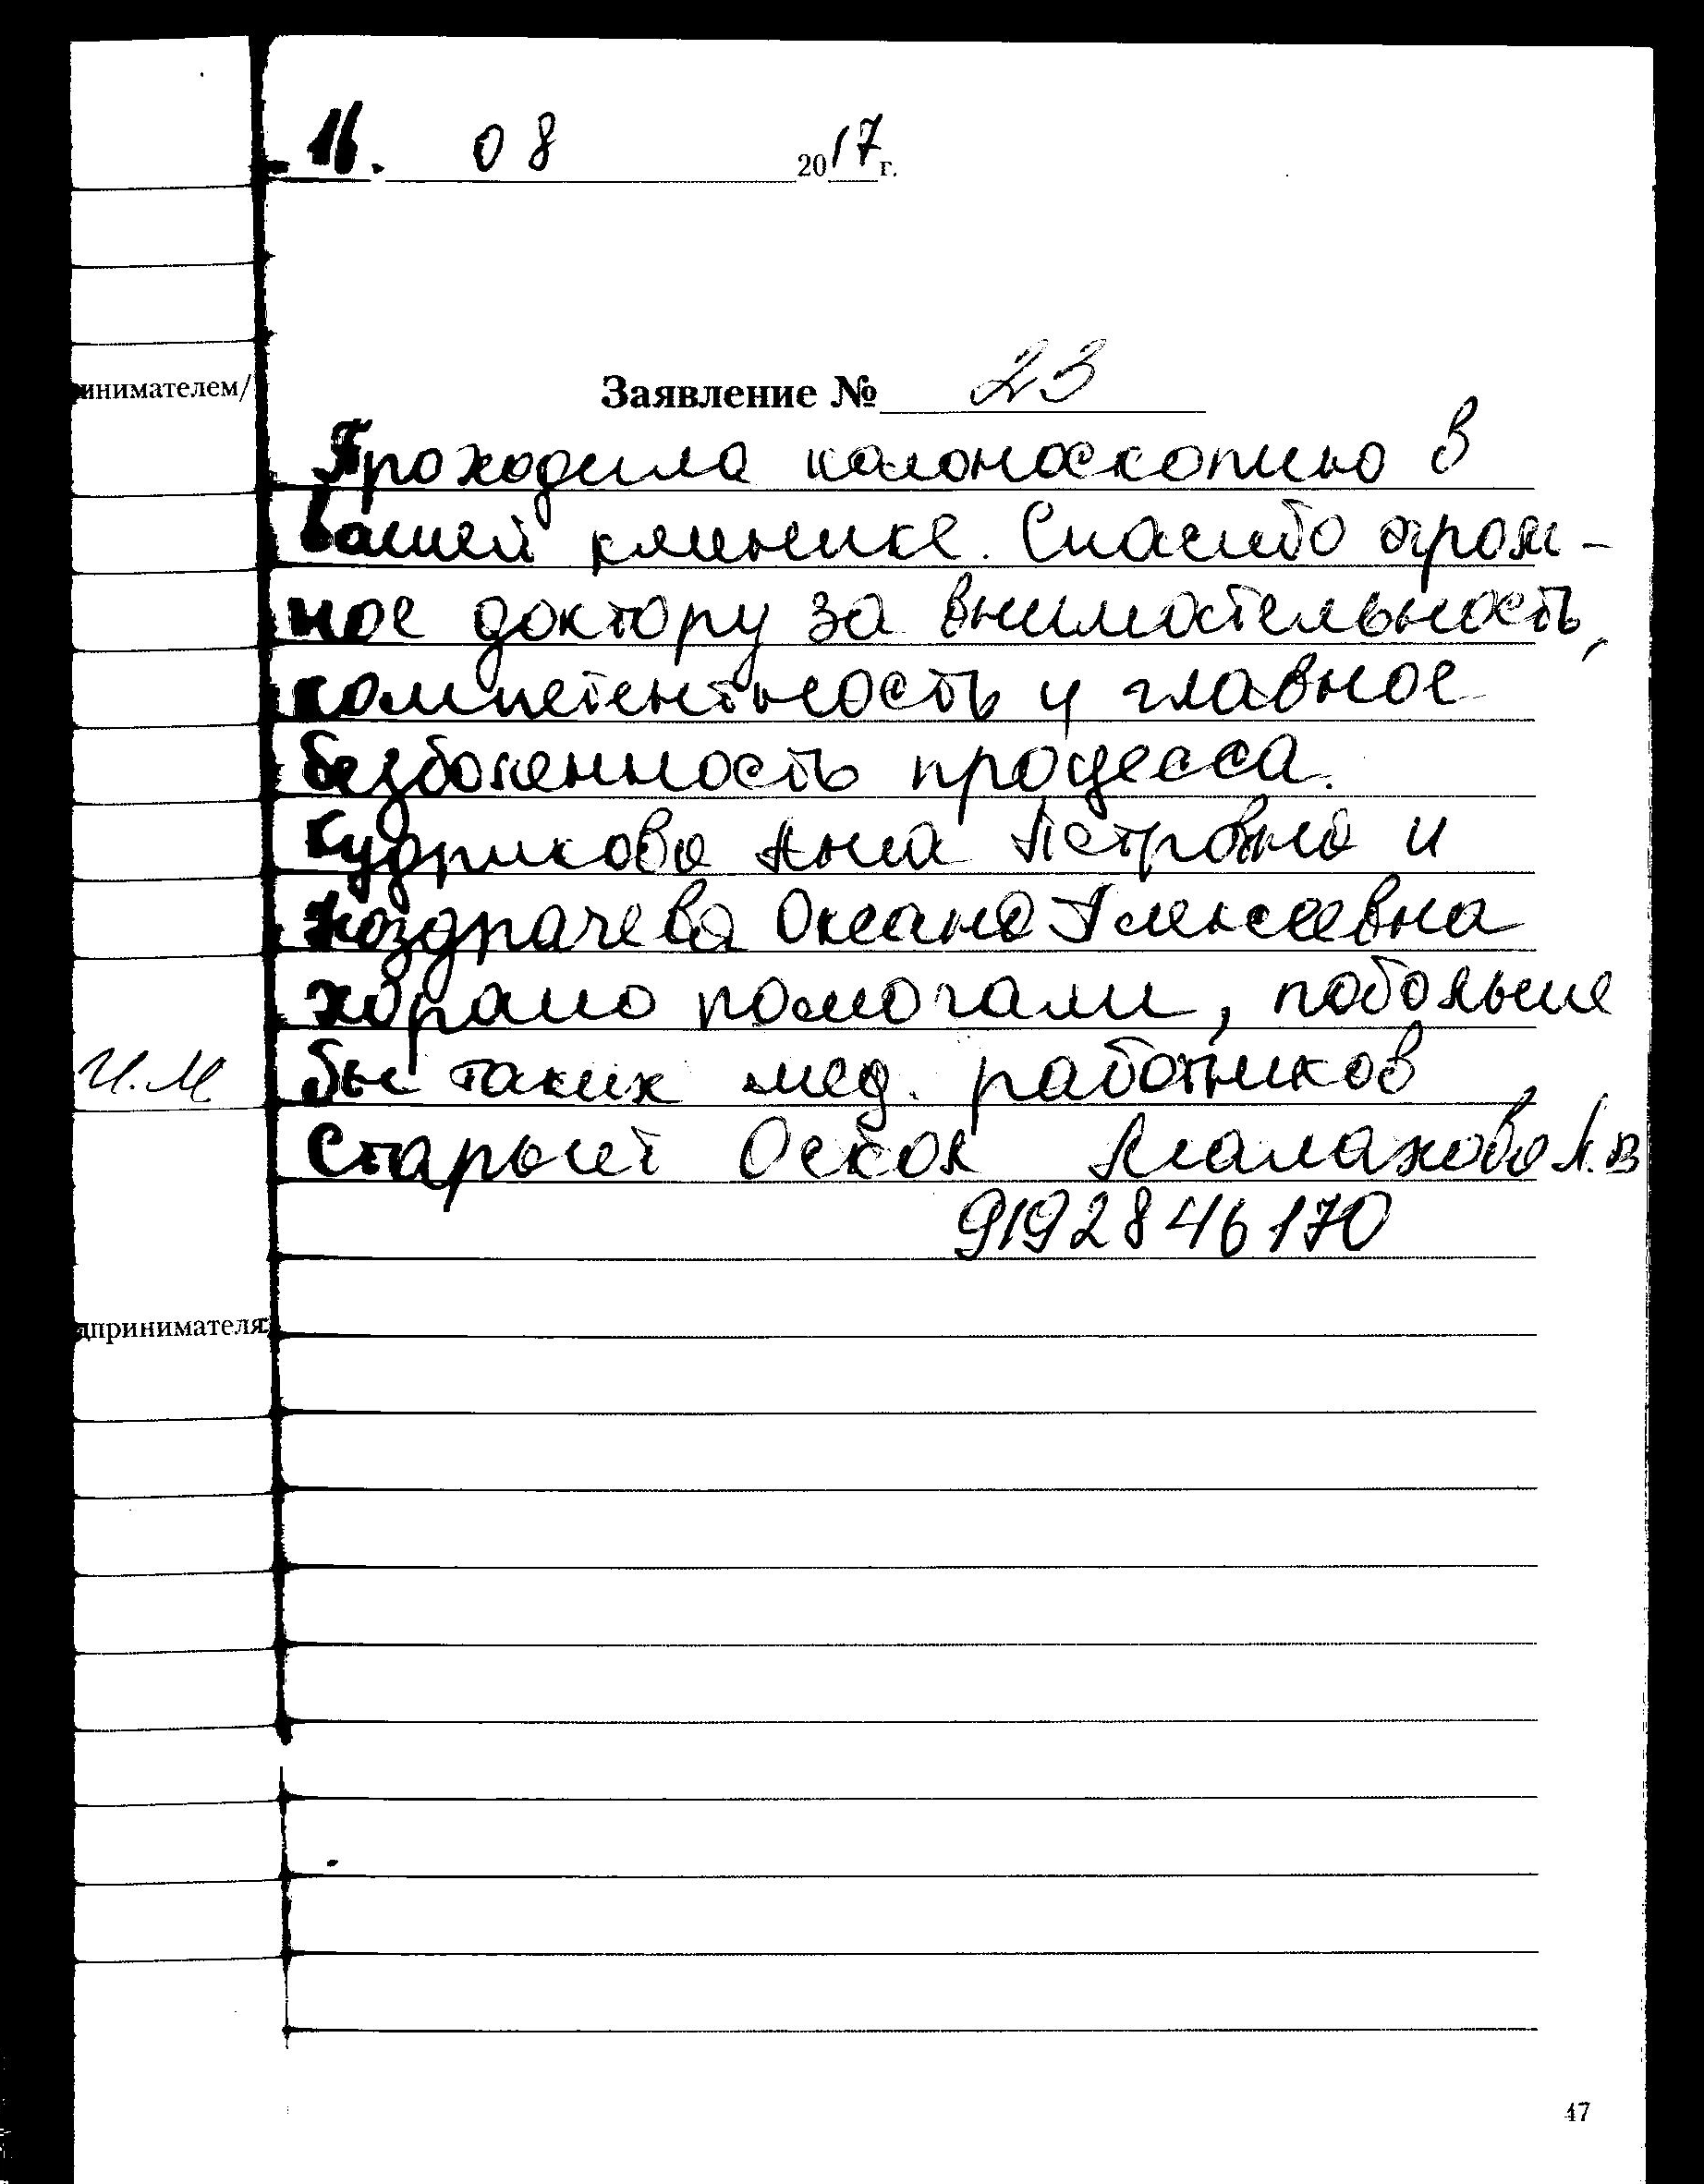 16. 08 2017 г.
инимателем/
Заявление № 23
Проходила колоноскопию в
вашей клинике. Спасибо огром-
ное доктору за внимательность,
компетентность и главное
безболенность процесса.
Кудрикова Анна Петровна и
Ноздрачева Оксана Алексеевна
хорошо помогали, побольше
И.М
бы таких мед. работников
Старый Оскол Малахова Л.В
9192846170
дпринимателя:
47